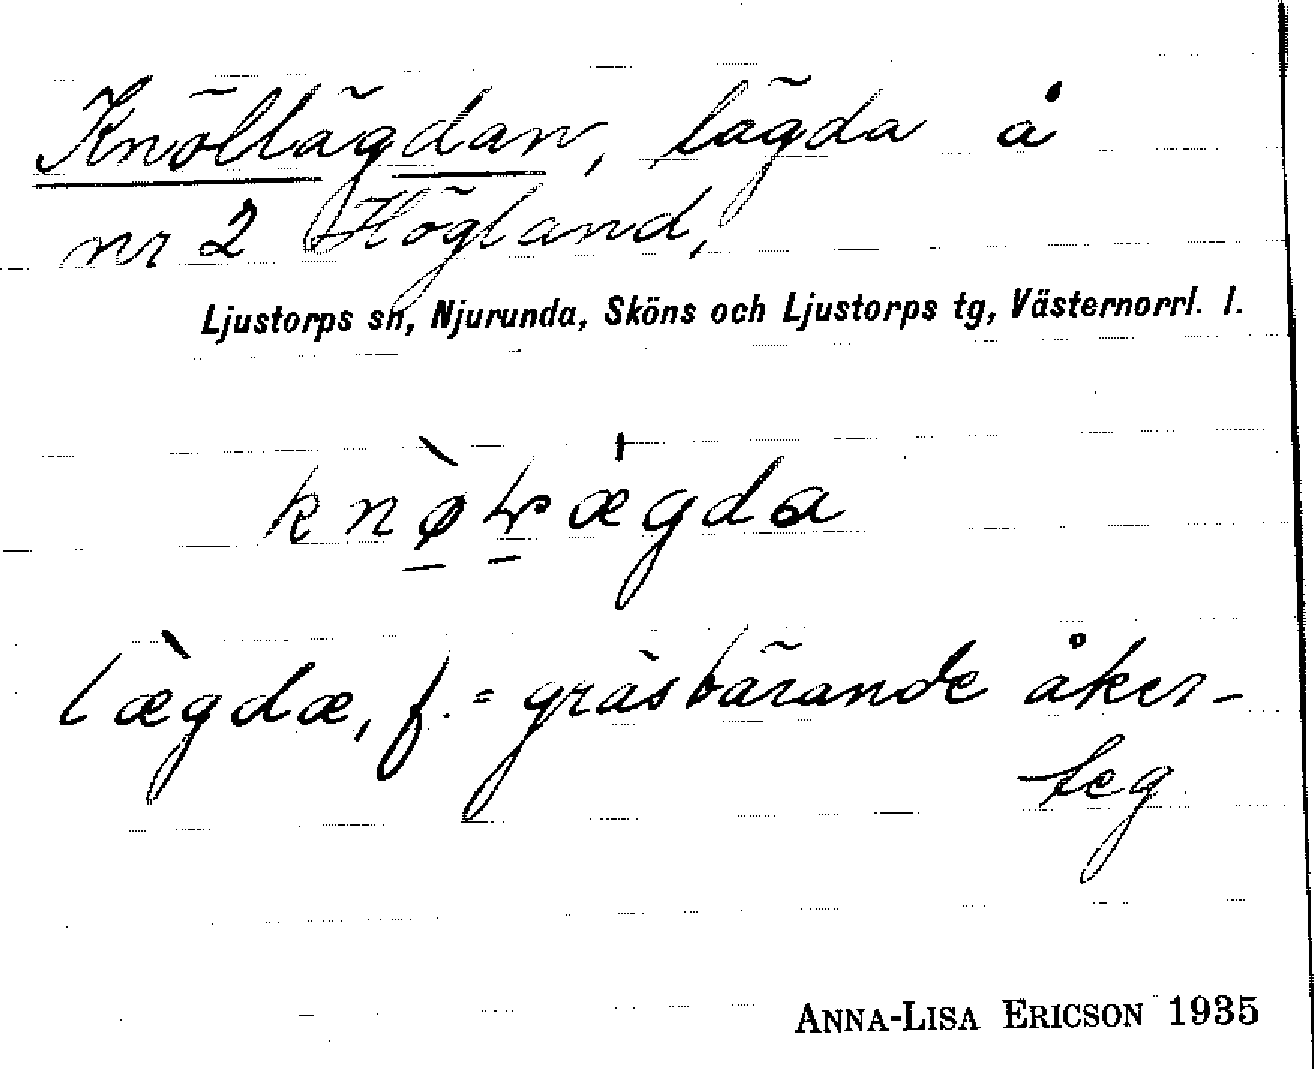 Knöllägdan, lägda å
nr 2 Högland,
Ljustorps sn, Njurunda, Sköns och Ljustorps tg, Västernorrl. l.
lægdæ, f. = gräsbärande åker-
teg
ANNA-LISA ERICSON 1935